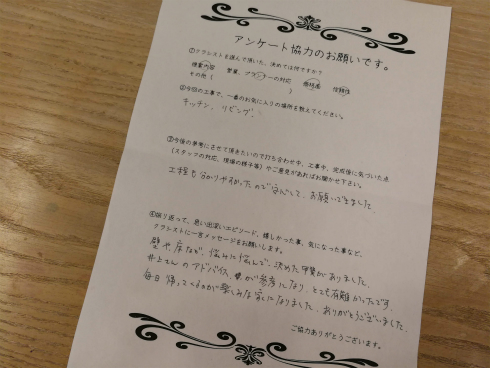 アンケート協力のお願いです。
①クラシストを選んで頂いた、決めては何ですか？
提案内容 営業、プランナーの対応 価格面 信頼性
その他（ ）
②今回の工事で、一番のお気に入りの場所を教えてください。
キッチン、リビング、
③今後の参考にさせて頂きたいので打ち合わせ中、工事中、完成後に気づいた点
（スタッフの対応、現場の様子等）やご意見があればお聞かせ下さい。
工程も分かりやすかったので安心して、お願いできました
④振り返って、思い出深いエピソード、嬉しかった事、気になった事など、
クラシストに一言メッセージをお願いします。
壁や床など、悩みに悩んで、決めた甲斐がありました。
井上さんのアドバイスが参考になり、とても有難かったです。
毎日帰ってくるのが楽しみな家になりました。ありがとうございました。
ご協力ありがとうございます。